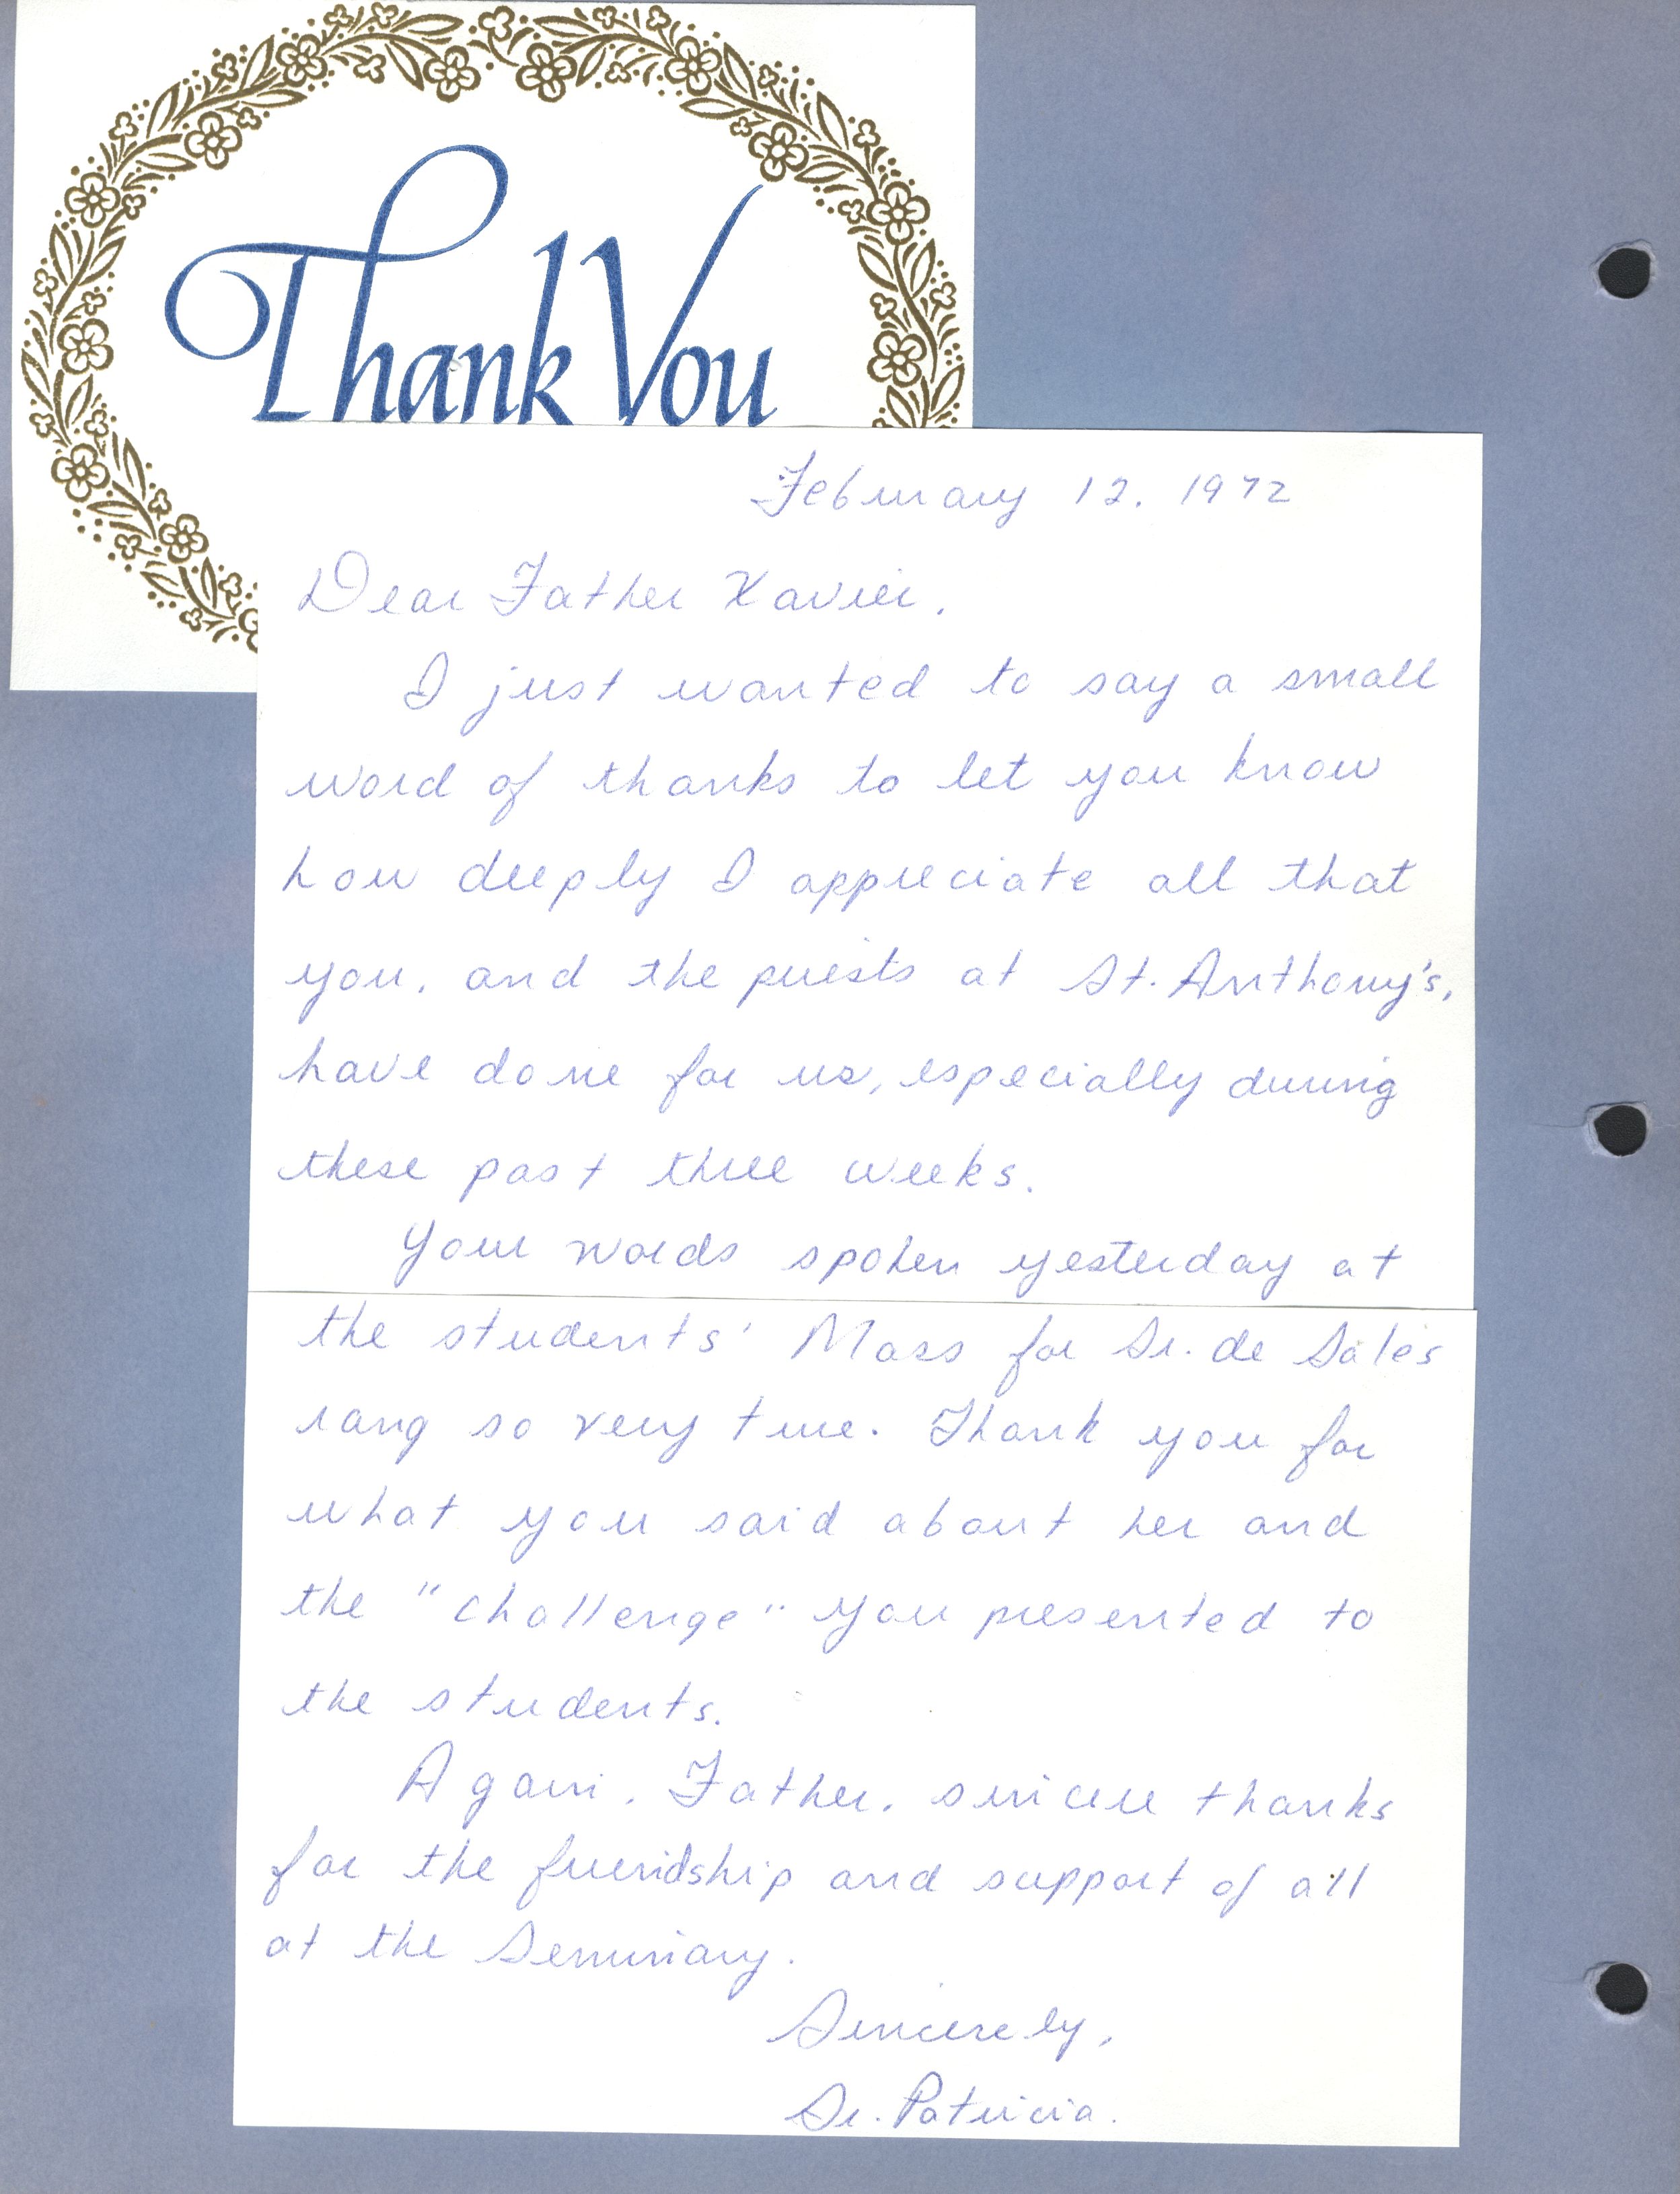 Thank You
February 12, 1972
Dear Father Xavier,
I just wanted to say a small
word of thanks to let you know
how deeply I appreciate all that
you, and the priests at St. Anthony's,
have done for us, especially during
these past three weeks.
Your words spoken yesterday at
the students' Mass for Sr. de Sales
rang so very true. Thank you for
what you said about her and
the "challenge" you presented to
the students.
Again, Father, sincere thanks
for the friendship and support of all
at the Seminary.
Sincerely,
Sr. Patricia.